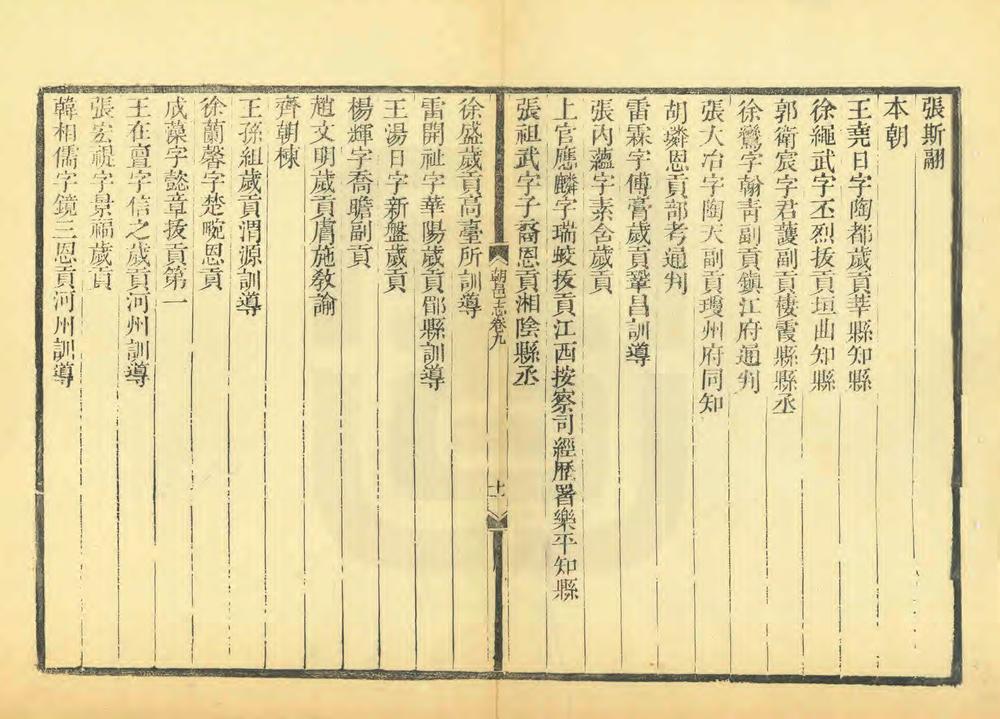 張斯翮
本朝
王堯日字陶都歲貢莘縣知縣
徐繩武字丕烈拔貢垣曲知縣
郭衛宸字君護副貢棲霞縣縣丞
徐鸞字翰靑副貢鎮江府通判
張大冶字陶天副貢瓊州府同知
胡璘恩貢部考通判
雷霖字傅膏歲貢鞏昌訓導
張內蘊字素含歲貢
上官應麟字瑞蛟拔貢江西按察司經歷署樂平知縣
張祖武字子裔恩貢湘陰縣丞
朝邑志卷九
十一
徐盛歲貢高臺所訓導
雷開祉字華陽歲貢郿縣訓導
王湯日字新盤歲貢
楊輝字喬瞻副貢
趙文明歲貢膚施敎諭
齊朝棟
王孫組歲貢渭源訓導
徐蘭馨字楚畹恩貢
成藻字懿章拔貢第一
王在亶字信之歲貢河州訓導
張宏禔字景福歲貢
韓相儒字鏡三恩貢河州訓導